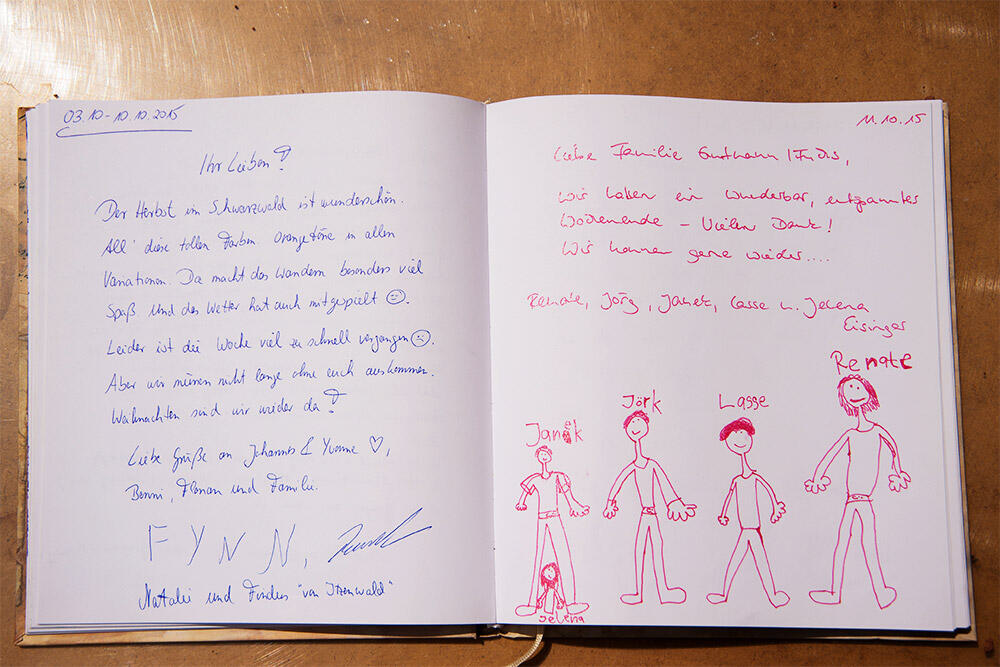 03.10 - 10.10.2015
Ihr Lieben!
Der Herbst im Schwarzwald ist wunderschön.
All' diese tollen Farben. Orangetöne in allen
Variationen. Da macht das Wandern besonders viel
Spaß und das Wetter hat auch mitgespielt ☺.
Leider ist die Woche viel zu schnell vergangen ☹.
Aber wir müssen nicht lange ohne euch auskommen.
Weihnachten sind wir wieder da!
Liebe Grüße an Johannes & Yvonne ♡,
Benni, Florian und Familie.
FYNN,
Natalie und "von Itzenwald"
11.10.15
Liebe Familie
wir haben ein wunderbar, entspanntes
Wochenende - Vielen Dank!
Wir kommen gerne wieder....
Renate, Jörg, Janek, Lasse u. Jelena
Eisinger
Renate
Lasse
Jörk
Janek
Jelena